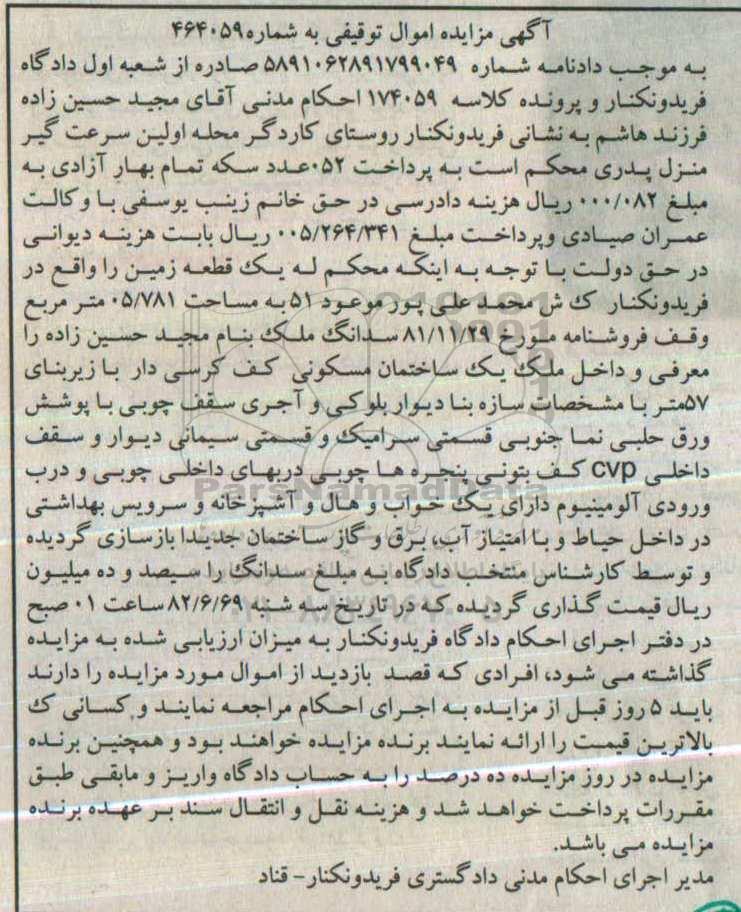 آگهی مزایده اموال توقیفی به شماره ۴۶۴۰۵۹
به موجب دادنامه شماره ۵۸۹۱۰۶۲۸۹۱۷۹۹۰۴۹ صادره از شعبه اول دادگاه
فریدونکنار و پرونده کلاسه ۱۷۴۰۵۹ احکام مدنی آقای مجید حسین زاده
فرزند هاشم به نشانی فریدونکنار روستای کاردگر محله اولین سرعت گیر
منزل پدری محکم است به پرداخت ۰۵۲عدد سکه تمام بهار آزادی به
مبلغ ۰۰۰/۰۸۲ ریال هزینه دادرسی در حق خانم زینب یوسفی با وکالت
عمران صیادی وپرداخت مبلغ ۰۰۵/۲۶۴/۳۴۱ ریال بابت هزینه دیوانی
در حق دولت با توجه به اینکه محکم له یک قطعه زمین را واقع در
فریدونکنار ک ش محمد علی پور موعود ۵۱ به مساحت ۰۵/۷۸۱ متر مربع
وقف فروشنامه مورخ ۸۱/۱۱/۲۹ سدانگ ملک بنام مجید حسین زاده را
معرفی و داخل ملک یک ساختمان مسکونی کف کرسی دار با زیربنای
۵۷متر با مشخصات سازه بنا دیوار بلوکی و آجری سقف چوبی با پوشش
ورق حلبی نما جنوبی قسمتی سرامیک و قسمتی سیمانی دیوار و سقف
داخلی cvp کف بتونی پنجره ها چوبی دربهای داخلی چوبی و درب
ورودی آلومینیوم دارای یک خواب و هال و آشپزخانه و سرویس بهداشتی
در داخل حیاط و با امتیاز آب، برق و گاز ساختمان جدیدا بازسازی گردیده
و توسط کارشناس منتخب دادگاه به مبلغ سدانگ را سیصد و ده میلیون
ریال قیمت گذاری گردیده که در تاریخ سه شنبه ۸۲/۶/۶۹ ساعت ۰۱ صبح
در دفتر اجرای احکام دادگاه فریدونکنار به میزان ارزیابی شده به مزایده
گذاشته می شود، افرادی که قصد بازدید از اموال مورد مزایده را دارند
باید ۵ روز قبل از مزایده به اجرای احکام مراجعه نمایند و کسانی ک
بالاترین قیمت را ارائه نمایند برنده مزایده خواهند بود و همچنین برنده
مزایده در روز مزایده ده درصد را به حساب دادگاه واریز و مابقی طبق
مقررات پرداخت خواهد شد و هزینه نقل و انتقال سند بر عهده برنده
مزایده می باشد.
مدیر اجرای احکام مدنی دادگستری فریدونکنار- قناد
ParsNamadData